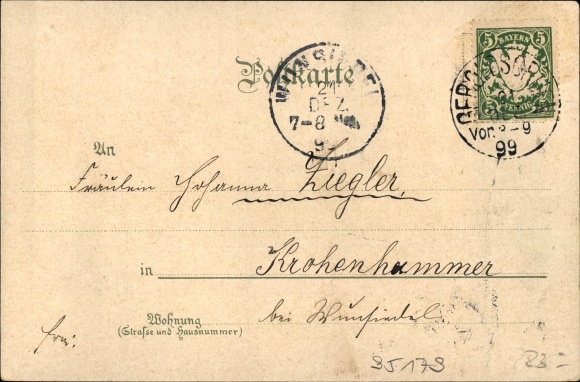 Postkarte
WUNSIEDEL
21
DEZ.
7-8 Nm.
99
5 BAYERN 5
Vor. 8-9
99
An
Fräulein Johanna Ziegler,
in Krohenhammer
Wohnung
(Strasse und Hausnummer)
bei Wunsiedel.
frei:
95179
23-